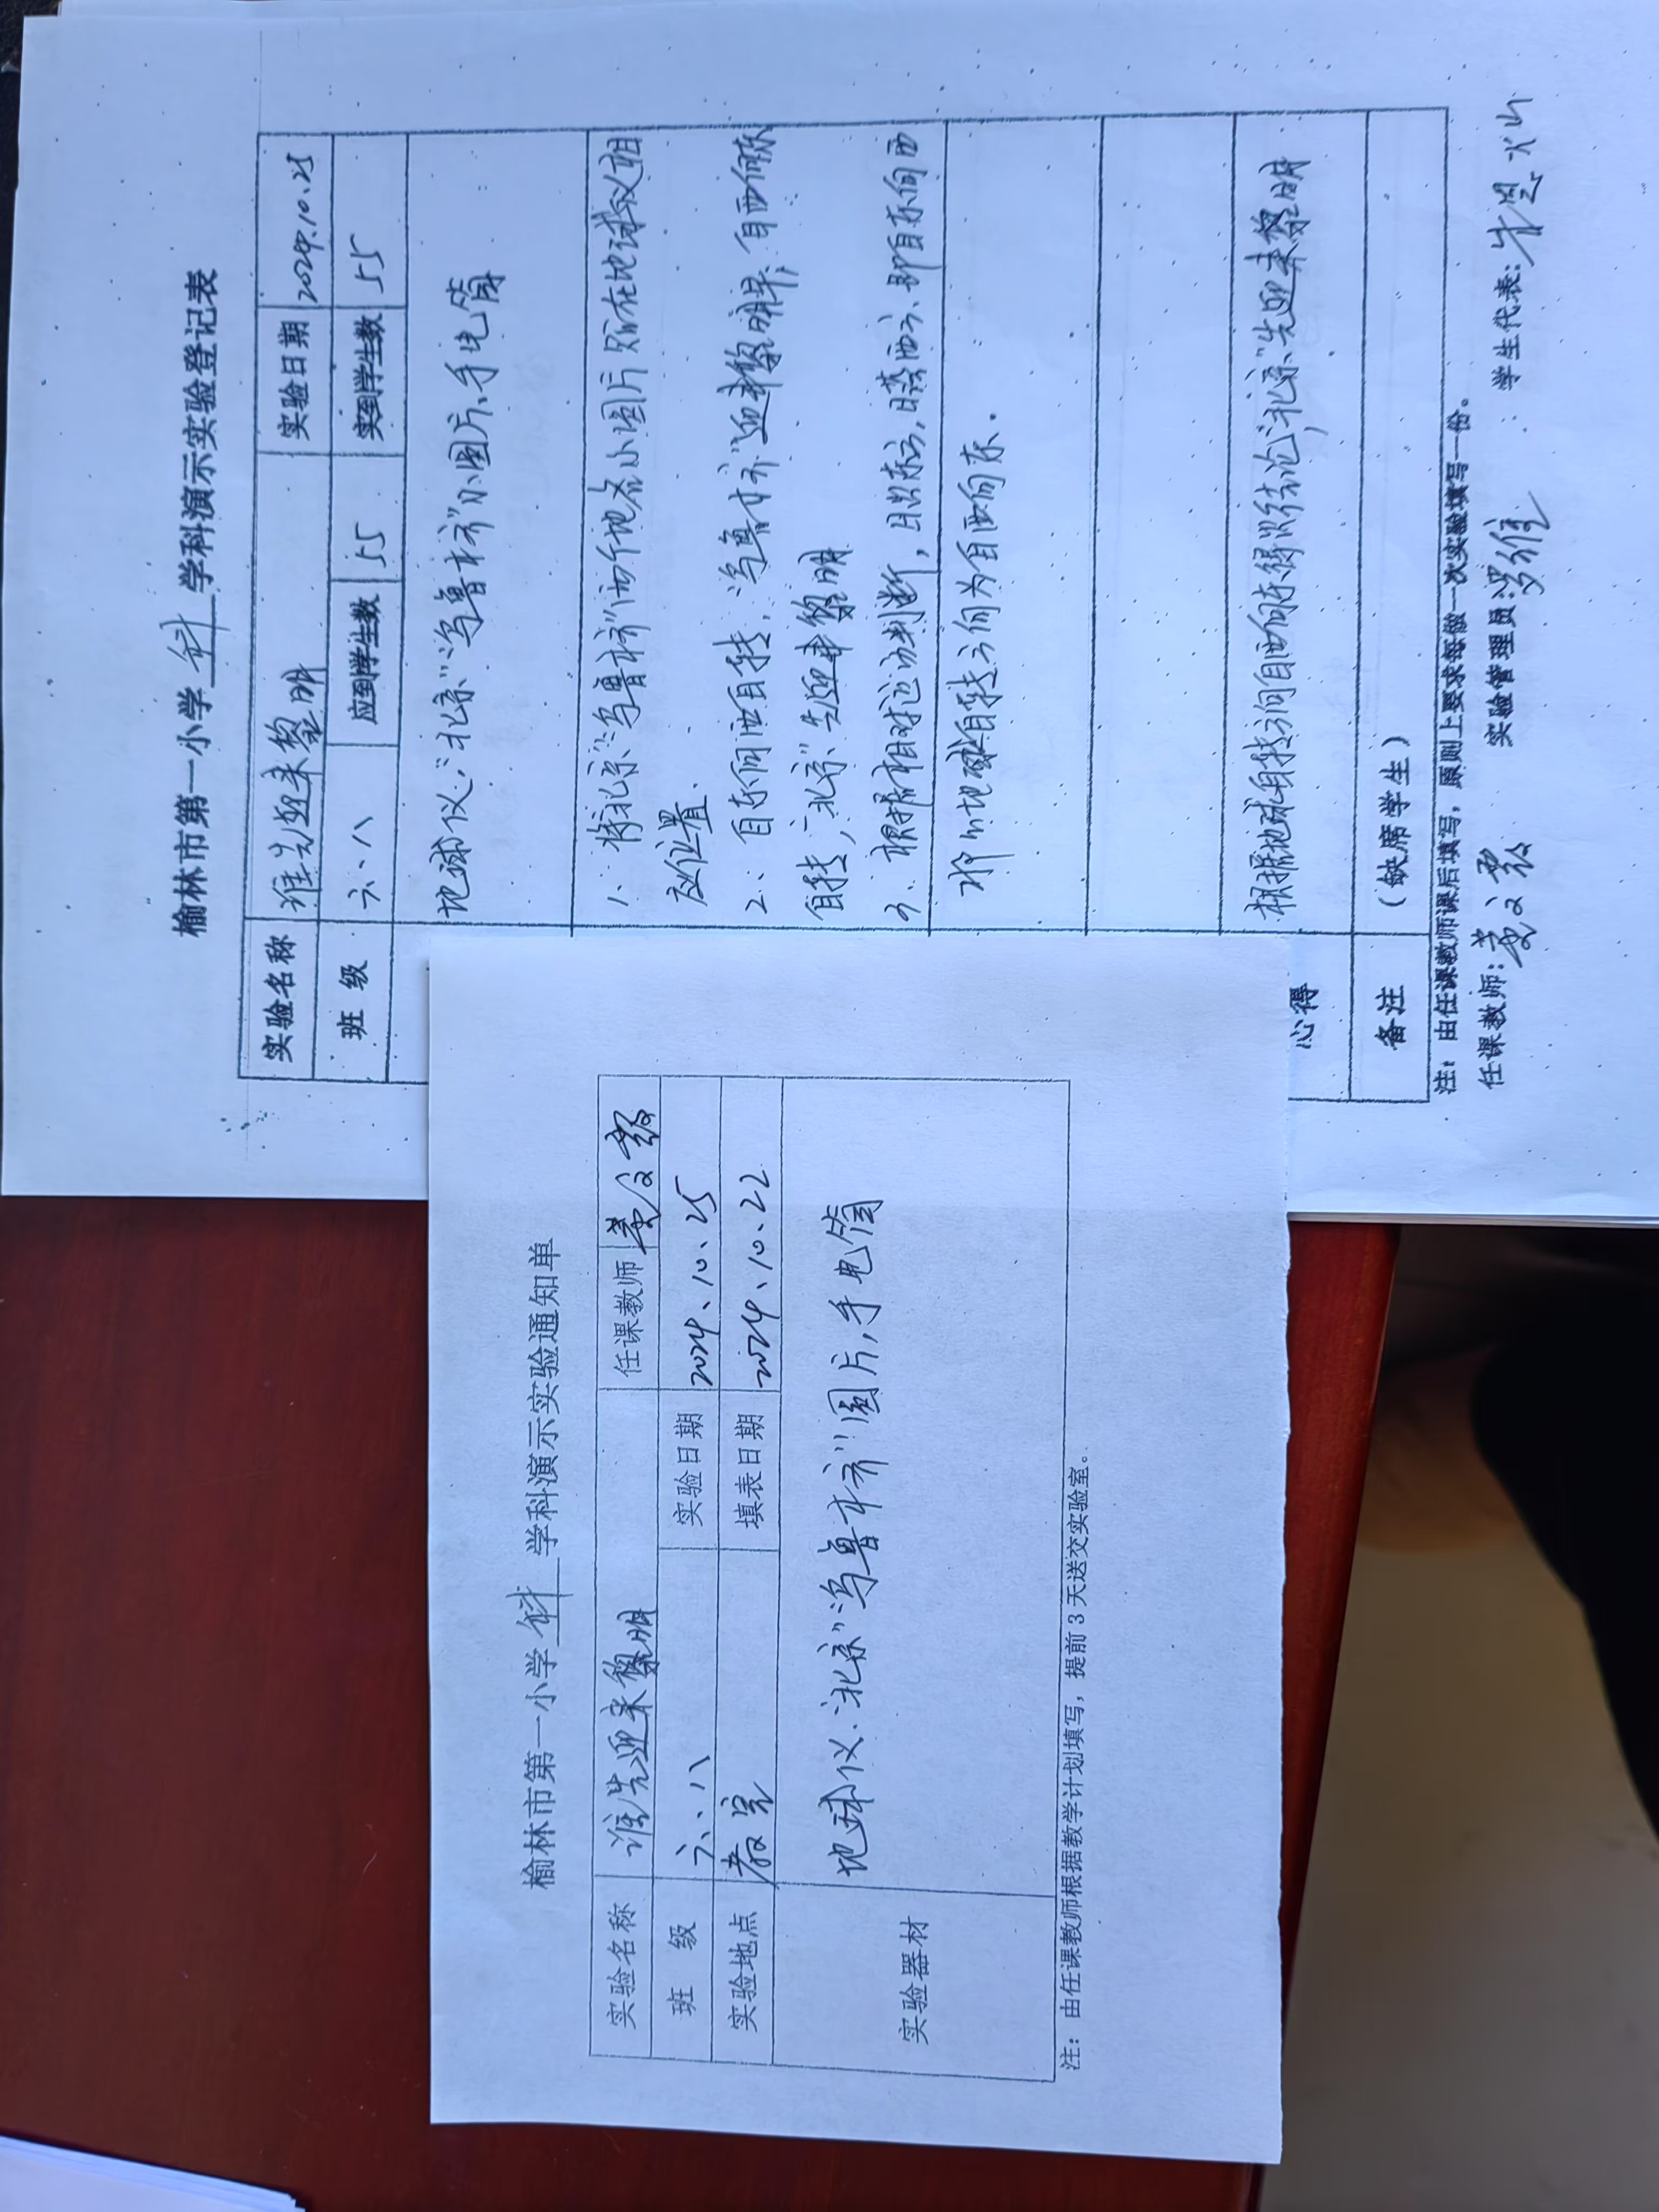 榆林市第一小学 科 学科演示实验登记表
实验名称 谁先迎来黎明 实验日期 2024.10.25
班 级 六、八 应到学生数 55 实到学生数 55
地球仪、“北京”“乌鲁木齐”小图片、手电筒
1、将“北京”“乌鲁木齐”两个地名小图片贴在地球仪相
应位置.
2、自东向西自转，“乌鲁木齐”迎来黎明早，自西向东
自转，“北京”先迎来黎明
3、根据相对运动判断，日出东方，日落西方、即自东向西
地球自转方向为自西向东.
根据地球自转方向自西向东得以结论，“北京”先迎来黎明
心得
备注 （缺席学生）
注：由任课教师课后填写，原则上要求每做一次实验填写一份。
任课教师： 实验管理员： 学生代表：
榆林市第一小学 科 学科演示实验通知单
实验名称 谁先迎来黎明 任课教师
班 级 六、八 实验日期 2024、10、25
实验地点 教室 填表日期 2024、10、22
实验器材 地球仪、“北京”“乌鲁木齐”图片，手电筒
注：由任课教师根据教学计划填写，提前 3 天送交实验室。